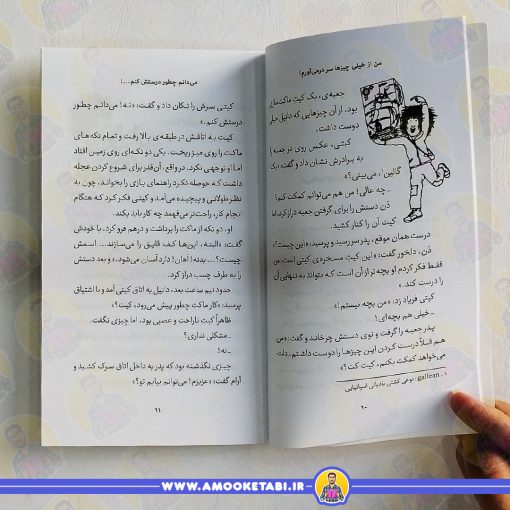 من از خیلی چیزها سر درمی‌آورم!
جعبه‌ی، یک کیت ماکت‌سازی
بود. از آن چیزهایی که دانیل خیلی
دوست داشت.
کیتی، عکس روی در جعبه را
به برادرش نشان داد و گفت: «یک
گالین۱، می‌بینی؟»
ـ چه عالی! من هم می‌توانم کمکت کنم!
دَن دستش را برای گرفتن جعبه دراز کرد، اما
کیت آن را کنار کشید.
درست همان موقع، پدر سر رسید و پرسید: «این چیست؟»
دَن، دلخور گفت: «این کیت مسخره‌ی کیتی است، من
فقط فکر کردم او بچه‌تر از آن است که بتواند به تنهایی آن
را درست کند.»
کیتی فریاد زد: «من بچه نیستم!»
ـ خیلی هم بچه‌ای!
پدر جعبه را گرفت و توی دستش چرخاند و گفت: «من
هم قبلاً درست کردن این چیزها را دوست داشتم. دلت
می‌خواهد کمکت بکنم، کیت کت؟»
۱. galleon، نوعی کشتی بادبانی اسپانیایی
۱۰
می‌دانم چطور درستش کنم...!
کیتی سرش را تکان داد و گفت: «نه! می‌دانم چطور
درستش کنم.»
کیت به اتاقش در طبقه‌ی بالا رفت و تمام تکه‌های
ماکت را روی میز ریخت. یکی دو تکه‌ای روی زمین افتاد
اما او توجهی نکرد. در واقع، آن‌قدر برای شروع کردن عجله
داشت که حوصله نکرد راهنمای بازی را بخواند، چون به نظر
طولانی و پیچیده می‌آمد و کیتی فکر کرد که هنگام
انجام کار، راحت‌تر می‌فهمد چه کار باید بکند.
او، دو تکه از ماکت را برداشت و درهم فرو کرد. با خودش
گفت: «البته، این‌ها کف قایق را می‌سازند... اسمش
چیست؟... بدنه! آهان! دارد آسان می‌شود.» و بعد دستش
را به طرف چسب دراز کرد.
حدود نیم ساعت بعد، دانیل به اتاق کیتی آمد و با اشتیاق
پرسید: «کار ماکت چطور پیش می‌رود، کیت؟»
ظاهراً کیت ناراحت و عصبی بود، اما چیزی نگفت.
ـ مشکلی نداری؟
ـ نه!
چیزی نگذشته بود که پدر به داخل اتاق سرک کشید و
آرام گفت: «عزیزم! می‌توانم بیایم تو؟»
۱۱
WWW.AMOOKETABI.IR